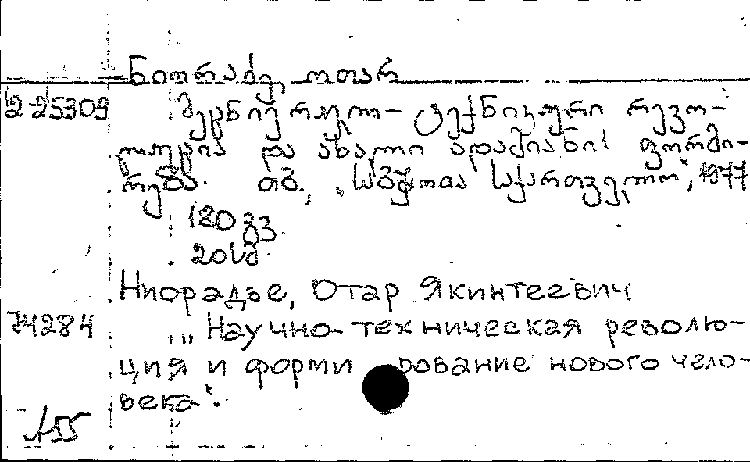 ნიორაძე, ოთარ
2-25309 მეცნიერულ-ტექნიკური რევო-
ლუცია და ახალი ადამიანის ფორმი-
რება. თბ., „საბჭოთა საქართველო“, 1977
180 გვ.
20 სმ.
Ниорадзе, Отар Якинтеевич
74284 „Научно-техническая револю-
ция и формирование нового чело-
века“.
155